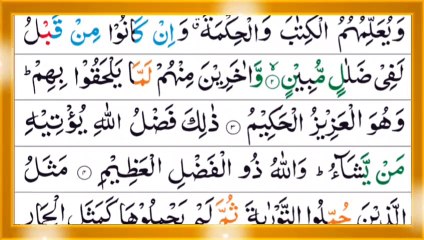 وَيُعَلِّمُهُمُ الْكِتٰبَ وَالْحِكْمَةَ ۗ وَاِنْ كَانُوْا مِنْ قَبْلُ
لَفِيْ ضَلٰلٍ مُّبِيْنٍ ۙ﴿۲﴾ وَّاٰخَرِيْنَ مِنْهُمْ لَمَّا يَلْحَقُوْا بِهِمْ ؕ
وَهُوَ الْعَزِيْزُ الْحَكِيْمُ ﴿۳﴾ ذٰلِكَ فَضْلُ اللّٰهِ يُؤْتِيْهِ
مَنْ يَّشَآءُ ؕ وَاللّٰهُ ذُو الْفَضْلِ الْعَظِيْمِ ﴿۴﴾ مَثَلُ
الَّذِيْنَ حُمِّلُوا التَّوْرٰىةَ ثُمَّ لَمْ يَحْمِلُوْهَا كَمَثَلِ الْحِمَارِ